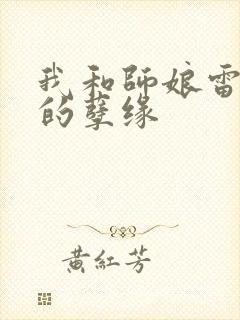 我和師娘雷
的孽缘
黃紅芳